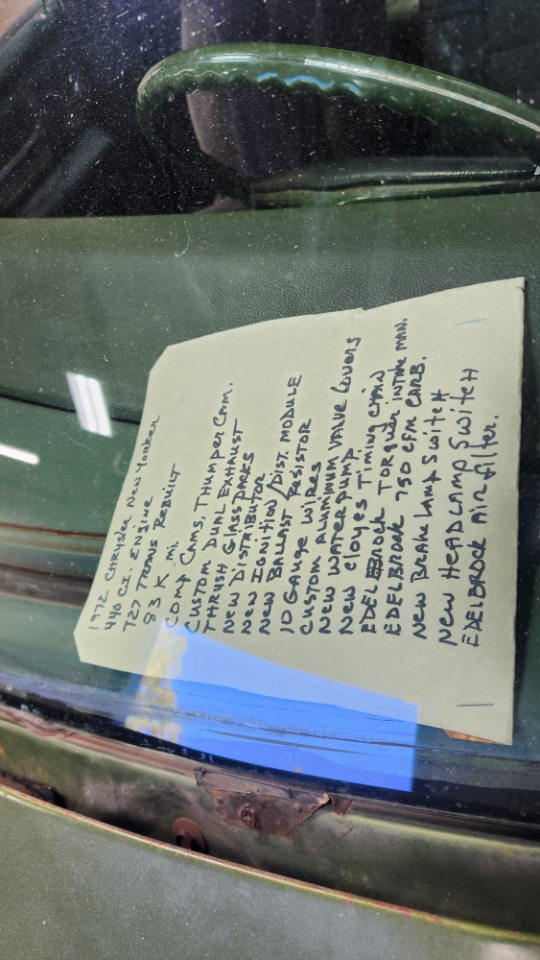 1972 CHRYSLER NEW YORKER
440 C.I. ENGINE
727 TRANS REBUILT
83 K mi.
COMP CAMS, THUMPER CAM.
CUSTOM DUAL EXHAUST
THRUSH GLASSPACKS
NEW DISTRIBUTOR
NEW IGNITION/DIST. MODULE
NEW BALLAST RESISTOR
10 GAUGE WIRES
CUSTOM ALUMINUM VALVE COVERS
NEW WATER PUMP
NEW CLOYES TIMING CHAIN
EDELBROCK TORQUER INTAKE MAN.
EDELBROCK 750 CFM CARB.
NEW BRAKE LAMP SWITCH
NEW HEADLAMP SWITCH
EDELBROCK AIR FILTER.